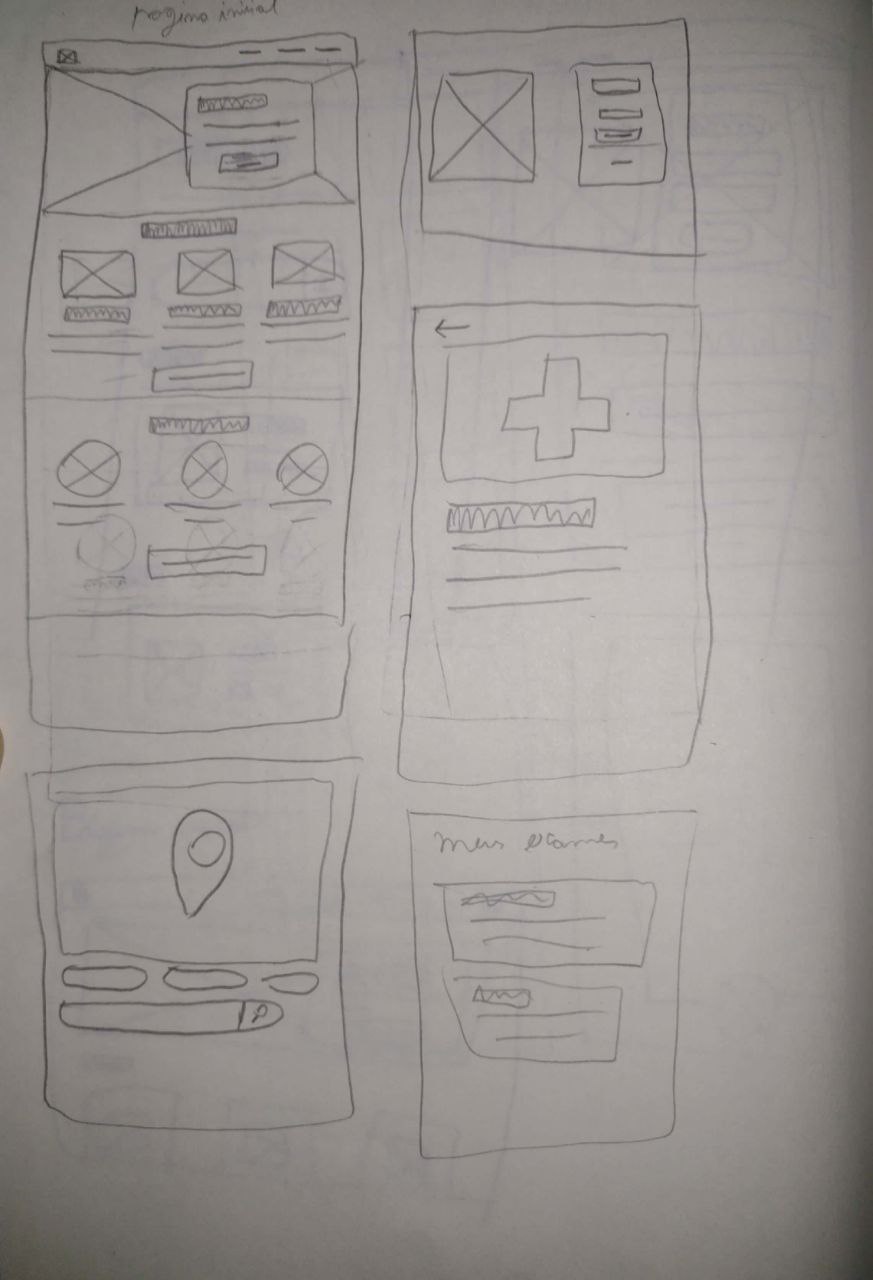 pagina inicial
meus exames